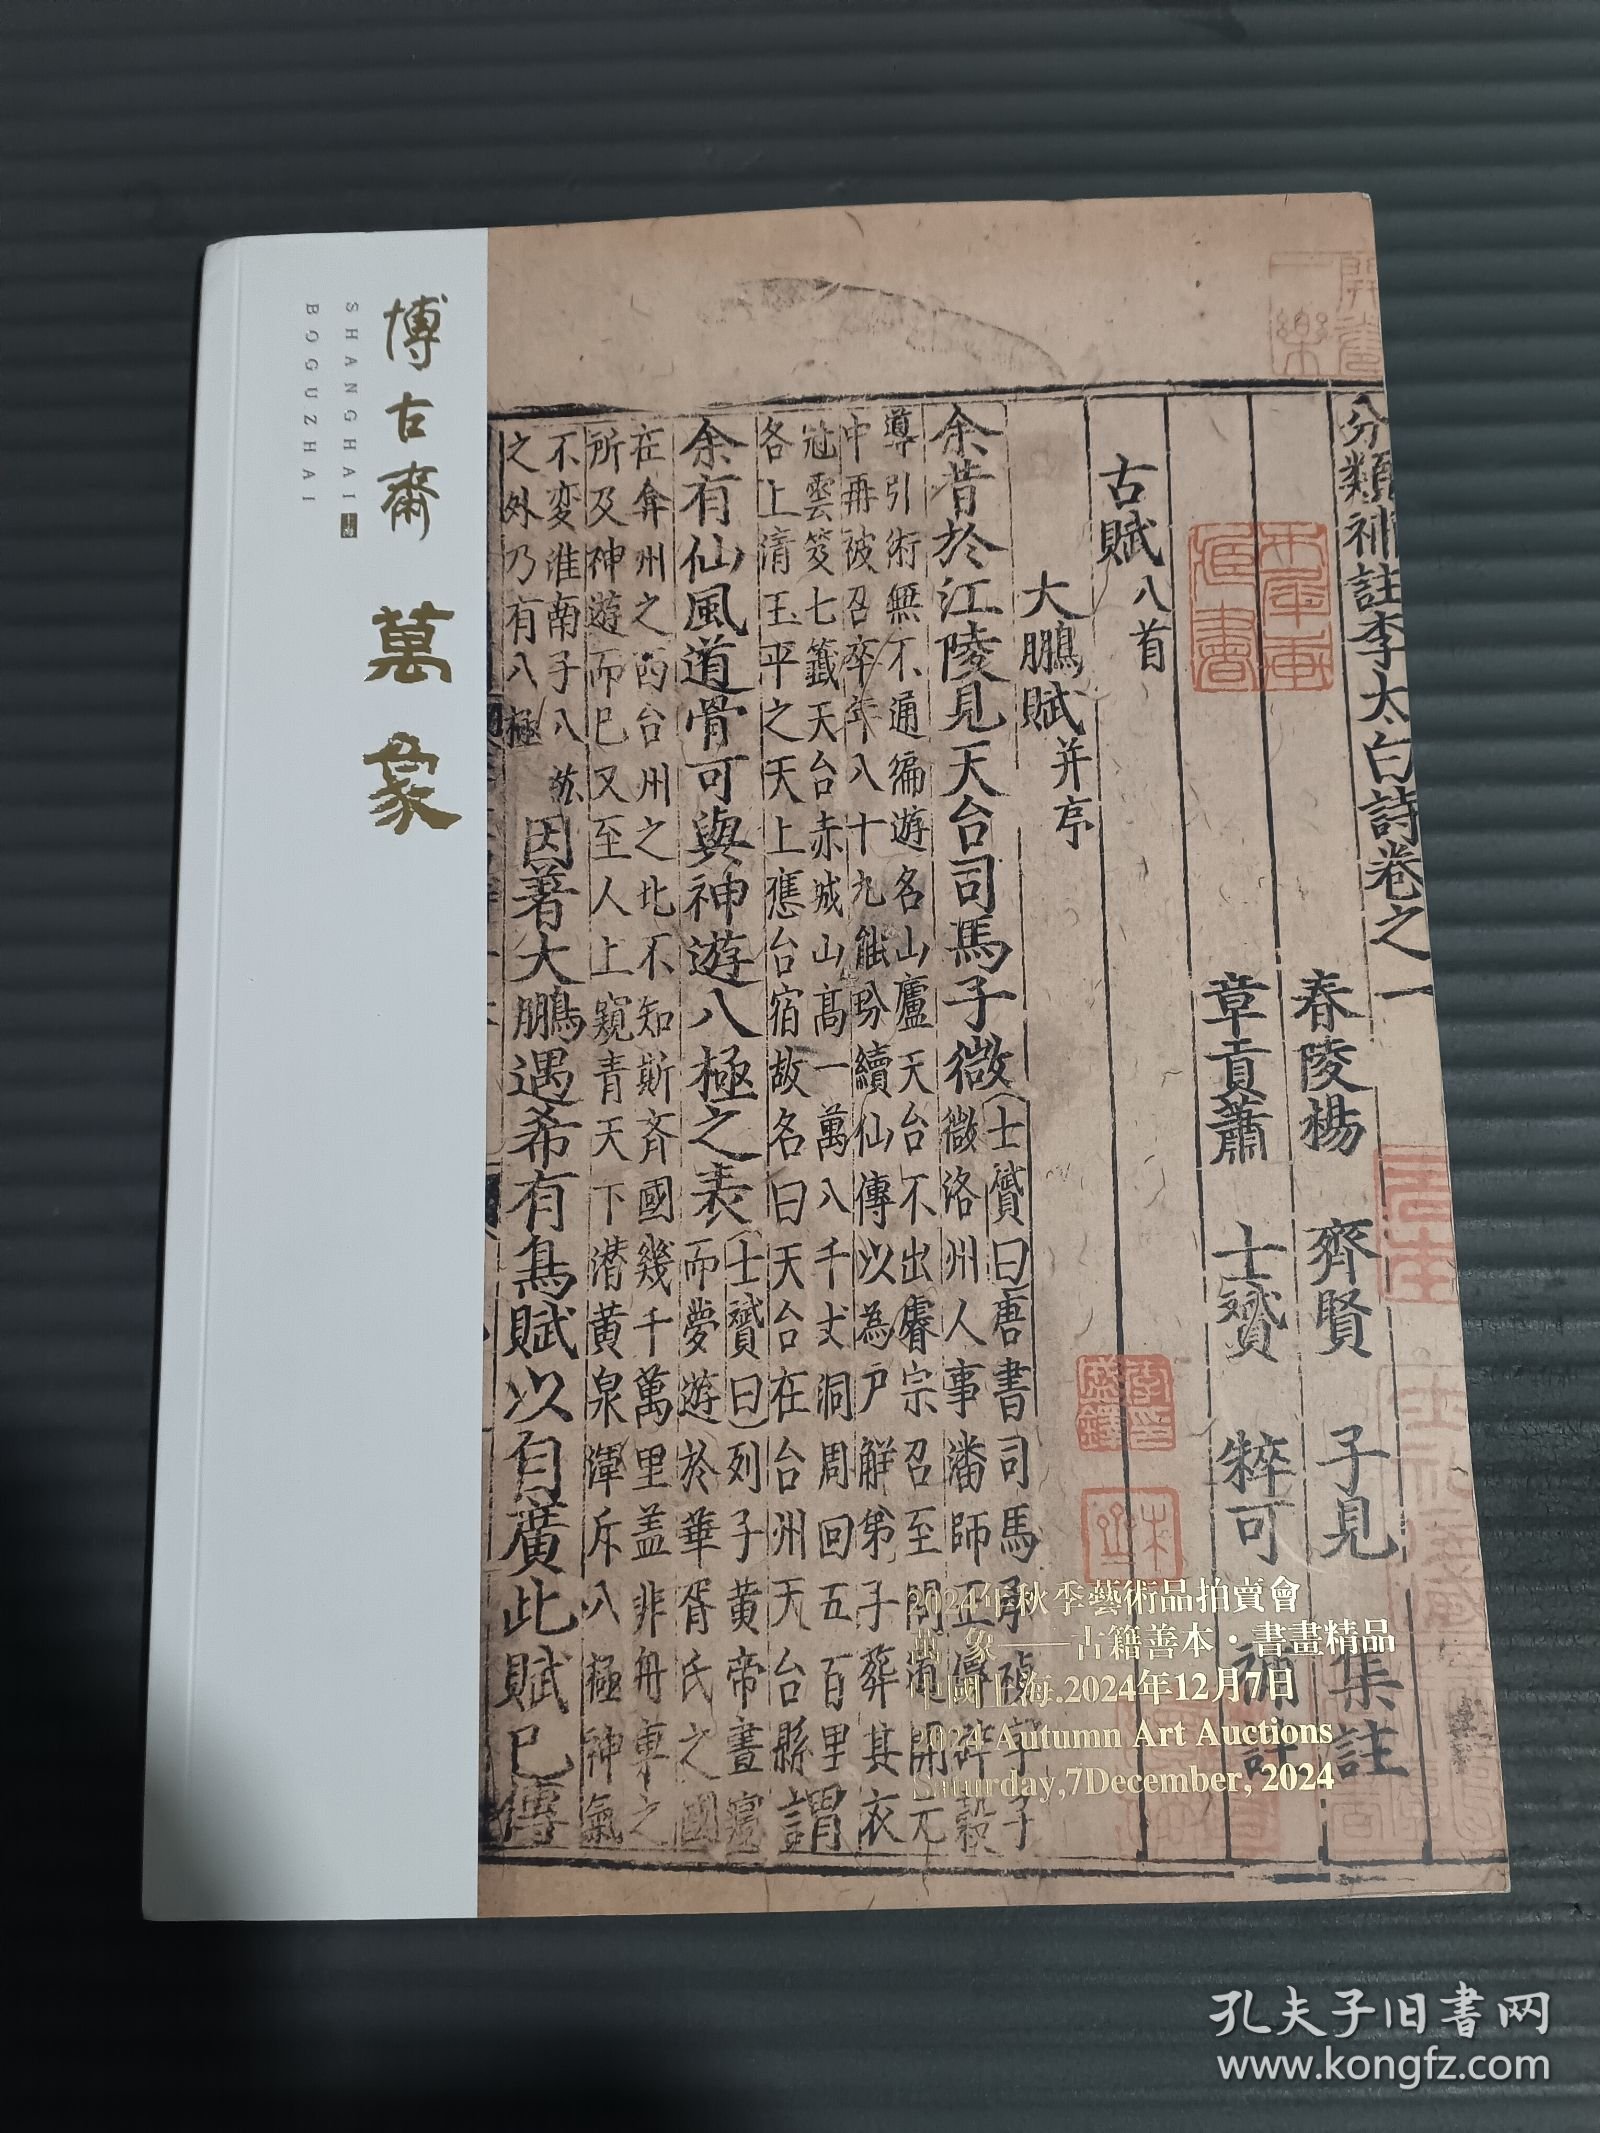 博古齋 萬象
SHANGHAI
BOGUZHAI
分類補註李太白詩卷之一
春陵楊 齊賢 子見 集註
章貢蕭 士贇 粹可 補註
古賦八首
大鵬賦并序
余昔於江陵見天台司馬子微
士贇曰唐書司馬承禎字子
微洛州人事潘師正傳辟穀
導引術無不通徧遊名山廬天台不出睿宗召至問道開元
中再被召卒年八十九能
續仙傳以為尸解弟子葬其衣
冠雲笈七籤天台赤城山高一萬八千丈洞周回五百里
各上清玉平之天上應台宿故名曰天台在台州天台縣謂
余有仙風道骨可與神遊八極之表
士贇曰列子黃帝晝寢
而夢遊於華胥氏之國
在弇州之西台州之北不知斯齊國幾千萬里蓋非舟車之
所及神遊而已又至人上窺青天下潛黃泉潭斥八極神氣
不變淮南子八
之外乃有八極
因著大鵬遇希有鳥賦以自廣此賦已傳
2024年秋季藝術品拍賣會
萬 象——古籍善本·書畫精品
中國上海.2024年12月7日
2024 Autumn Art Auctions
Saturday,7December, 2024
孔夫子旧书网
www.kongfz.com